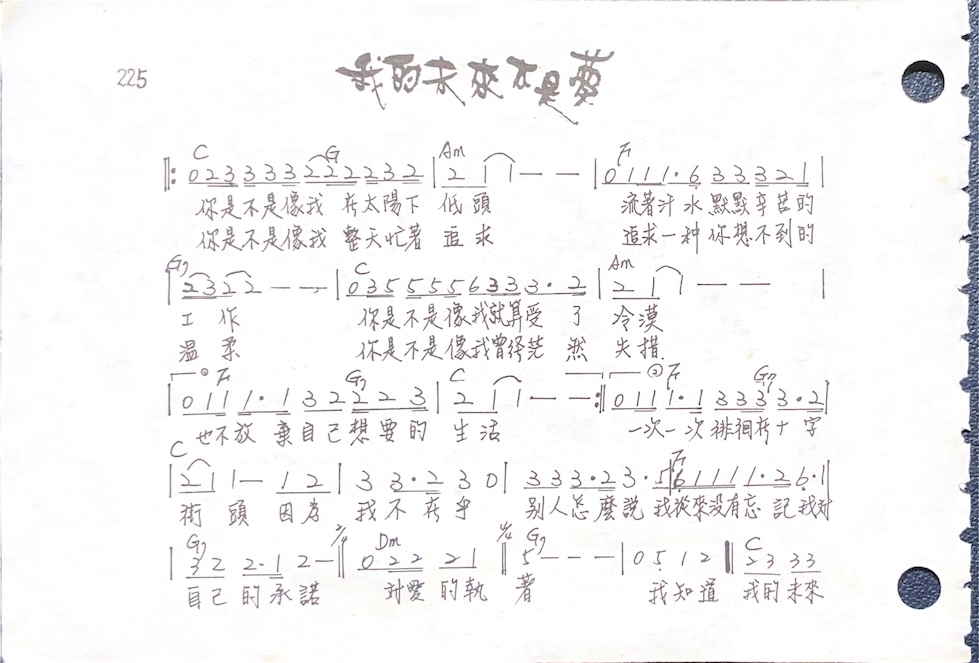 225
我的未來不是夢
C G Am F
0 2 3 3 3 3 3 2 2 2 2 2 3 2 | 2 1 1 — — | 0 1 1 1 · 6 3 3 3 2 1 |
你是不是像我 在太陽下 低頭 流著汗水默默辛苦的
你是不是像我 整天忙著 追求 追求一种你想不到的
G7 C Am
| 2 3 2 2 — — | 0 3 5 5 5 5 6 3 3 3 · 2 | 2 1 1 — — |
工作 你是不是像我就算受了 冷漠
溫柔 你是不是像我曾经茫然 失措
① F G7 C ② F G7
| 0 1 1 1 · 1 3 2 2 2 3 | 2 1 1 — — :| 0 1 1 1 · 1 3 3 3 3 · 2 |
也不放棄自己想要的 生活 一次一次徘徊在十字
C F
| 2 1 1 — 1 2 | 3 3 · 2 3 0 | 3 3 3 · 2 3 · 5 | 6 1 1 1 1 · 2 6 · 1 |
街頭 因為 我不在乎 别人怎麼說 我從來没有忘記我对
G7 2/4 Dm 4/4 G7 C
| 3 2 2 · 1 2 — || 0 2 2 2 1 || 5 — — — | 0 5 1 2 || 2 3 3 3
自己的承諾 对愛的執著 我知道 我的未來